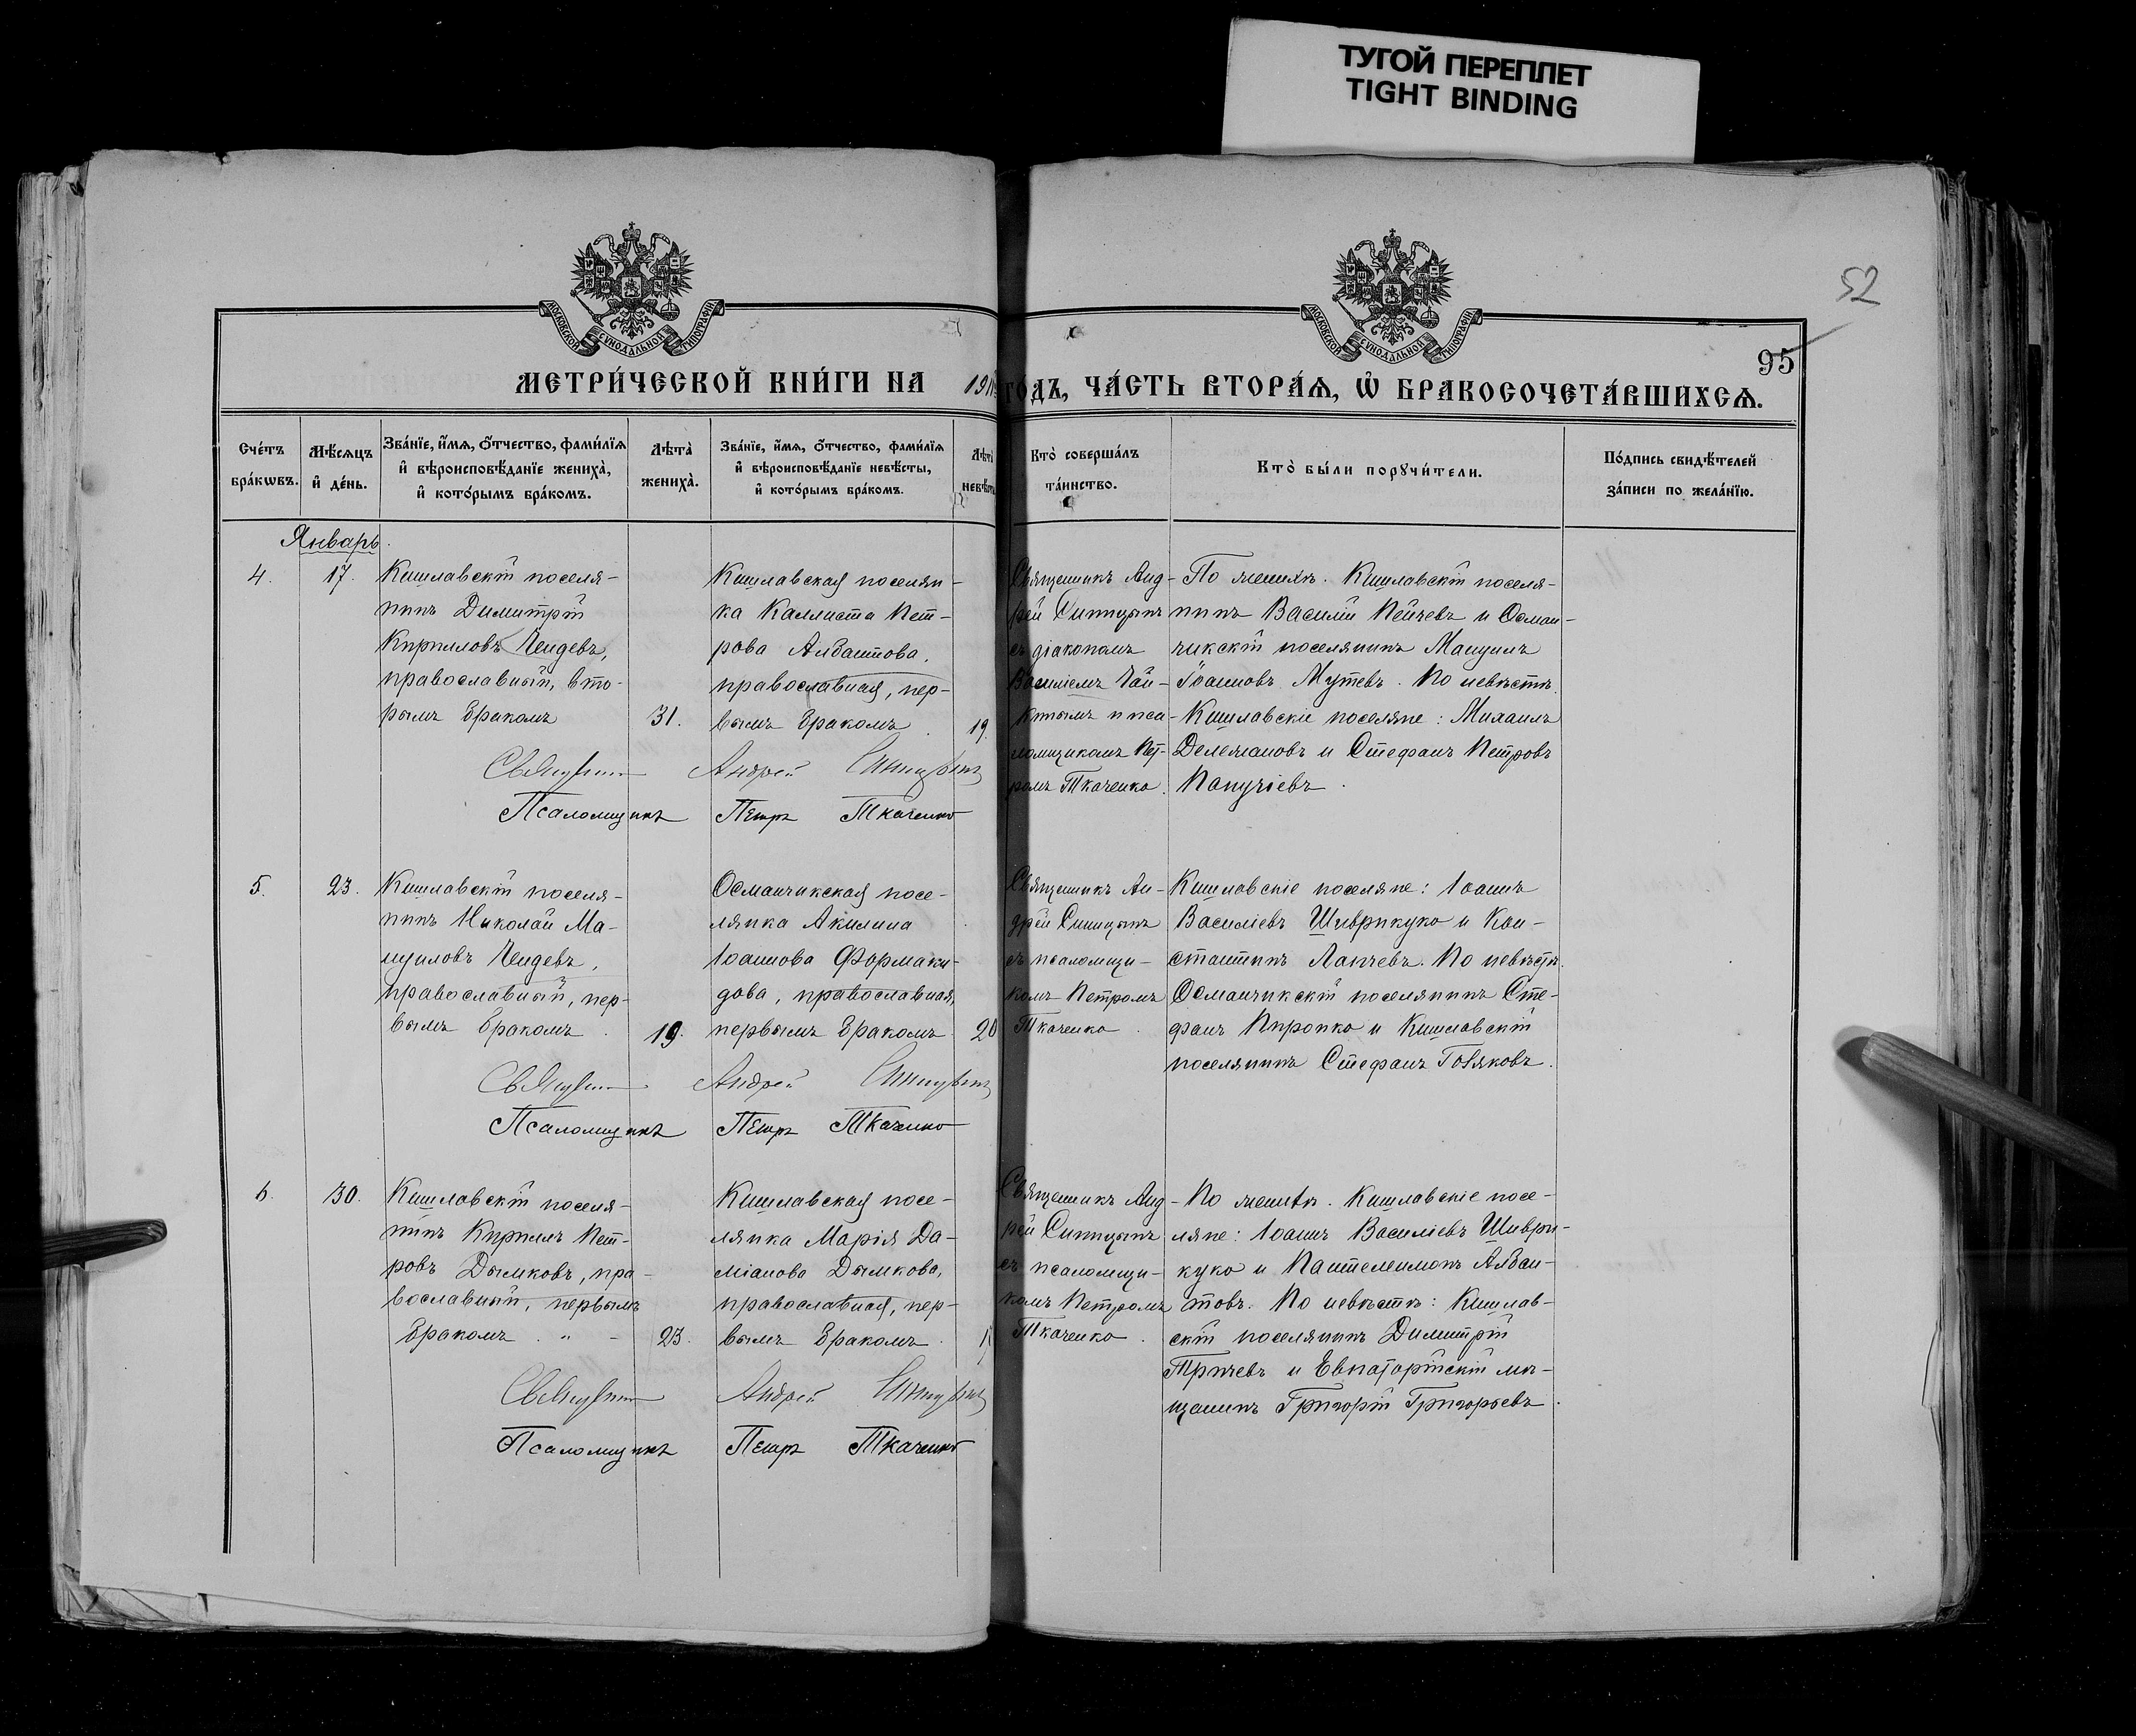 ТУГОЙ ПЕРЕПЛЕТ
TIGHT BINDING
52
95
МОСКОВСКОЙ СѴНОДАЛЬНОЙ ТИПОГРАФІИ
МОСКОВСКОЙ СѴНОДАЛЬНОЙ ТИПОГРАФІИ
МЕТРИ́ЧЕСКОЙ КНИ́ГИ НА 191 ГО́ДЪ, ЧА́СТЬ ВТОРА́Ѧ, Ѡ҆ БРАКОСОЧЕТА́ВШИХСѦ.
Сче́тъ
бра́кѡвъ.
Мѣ́сѧцъ
и҆ де́нь.
Зва́нїе, и҆́мѧ, ѻ҆́тчество, фами́лїѧ
и҆ вѣроисповѣ́данїе жениха̀,
и҆ кото́рымъ бра́комъ.
Лѣта̀
жениха̀.
Зва́нїе, и҆́мѧ, ѻ҆́тчество, фами́лїѧ
и҆ вѣроисповѣ́данїе невѣ́сты,
и҆ кото́рымъ бра́комъ.
Лѣта̀
невѣ́сты
Кто̀ соверша́лъ
та́инство.
Кто̀ бы́ли порꙋчи́тели.
По́дпись свидѣ́телей
за́писи по жела́нїю.
Январь.
4.
17.
Кишлавскій поселя-
нинъ Димитрій
Кирилловъ Чендевъ,
православный, вто-
рымъ бракомъ
31.
Кишлавская поселян-
ка Каллиста Пет-
рова Албантова,
православная, пер-
вымъ бракомъ
19.
Священникъ Анд-
рей Синицынъ
съ діакономъ
Василіемъ Чай-
кинымъ и пса-
ломщикомъ Пет-
ромъ Ткаченко.
По женихѣ. Кишлавскій поселя-
нинъ Василій Пейчевъ и Осман-
чикскій поселянинъ Мануилъ
Іоанновъ Мутевъ. По невѣстѣ.
Кишлавскіе поселяне: Михаилъ
Делемановъ и Стефанъ Петровъ
Папучіевъ.
Священникъ Андрей Синицынъ
Псаломщикъ Петръ Ткаченко
5.
23.
Кишлавскій поселя-
нинъ Николай Ма-
нуиловъ Чендевъ,
православный, пер-
вымъ бракомъ.
19.
Османчикская посе-
лянка Акилина
Іоаннова Формаки-
дова, православная,
первымъ бракомъ
20
Священникъ Ан-
дрей Синицынъ
съ псаломщи-
комъ Петромъ
Ткаченко.
Кишлавскіе поселяне: Іоаннъ
Василіевъ Шиврикуко и Кон-
стантинъ Лапчевъ. По невѣстѣ.
Османчикскій поселянинъ Сте-
фанъ Пиропко и Кишлавскій
поселянинъ Стефанъ Говяковъ.
Священникъ Андрей Синицынъ
Псаломщикъ Петръ Ткаченко
6.
30.
Кишлавскій поселя-
нинъ Кириллъ Пет-
ровъ Дымковъ, пра-
вославный, первымъ
бракомъ. " -
23.
Кишлавская посе-
лянка Марія Да-
міанова Дымкова,
православная, пер-
вымъ бракомъ.
Священникъ Анд-
рей Синицынъ
съ псаломщи-
комъ Петромъ
Ткаченко.
По женихѣ. Кишлавскіе посе-
ляне: Іоаннъ Василіевъ Шиври-
куко и Пантелеимонъ Албан-
товъ. По невѣстѣ: Кишлав-
скій поселянинъ Димитрій
Тричевъ и Евпаторійскій мѣ-
щанинъ Григорій Григорьевъ.
Священникъ Андрей Синицынъ
Псаломщикъ Петръ Ткаченко